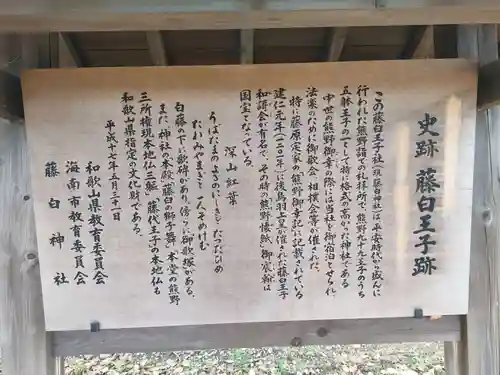 史跡 藤白王子跡
この藤白王子社(現 藤白神社)は、平安時代から盛んに
行われた熊野詣での礼拝所で、熊野九十九王子のうち
五躰王子の一として特に格式の高かった神社である
中世の熊野御幸の際には当社を御宿泊とせられ、
法楽のために御歌会、相撲会等が催された。
特に藤原定家の熊野御幸記に記載されている
建仁元年(一二〇一年)に後鳥羽上皇が催された藤白王子
和歌会が有名で、その時の熊野懐紙(御宸翰)は
国宝となっている。
深山紅葉
うばたまのよるのにしきをたつたひめ
たれみやまぎと一人そめけむ
白藤の下に歌碑があり、傍らに御歌塚がある。
また、神社の本殿、藤白の獅子舞、本堂の熊野
三所権現本地仏三躯、藤代王子の本地仏も
和歌山県指定の文化財である。
平成十七年五月三十一日
和歌山県教育委員会
海南市教育委員会
藤白神社